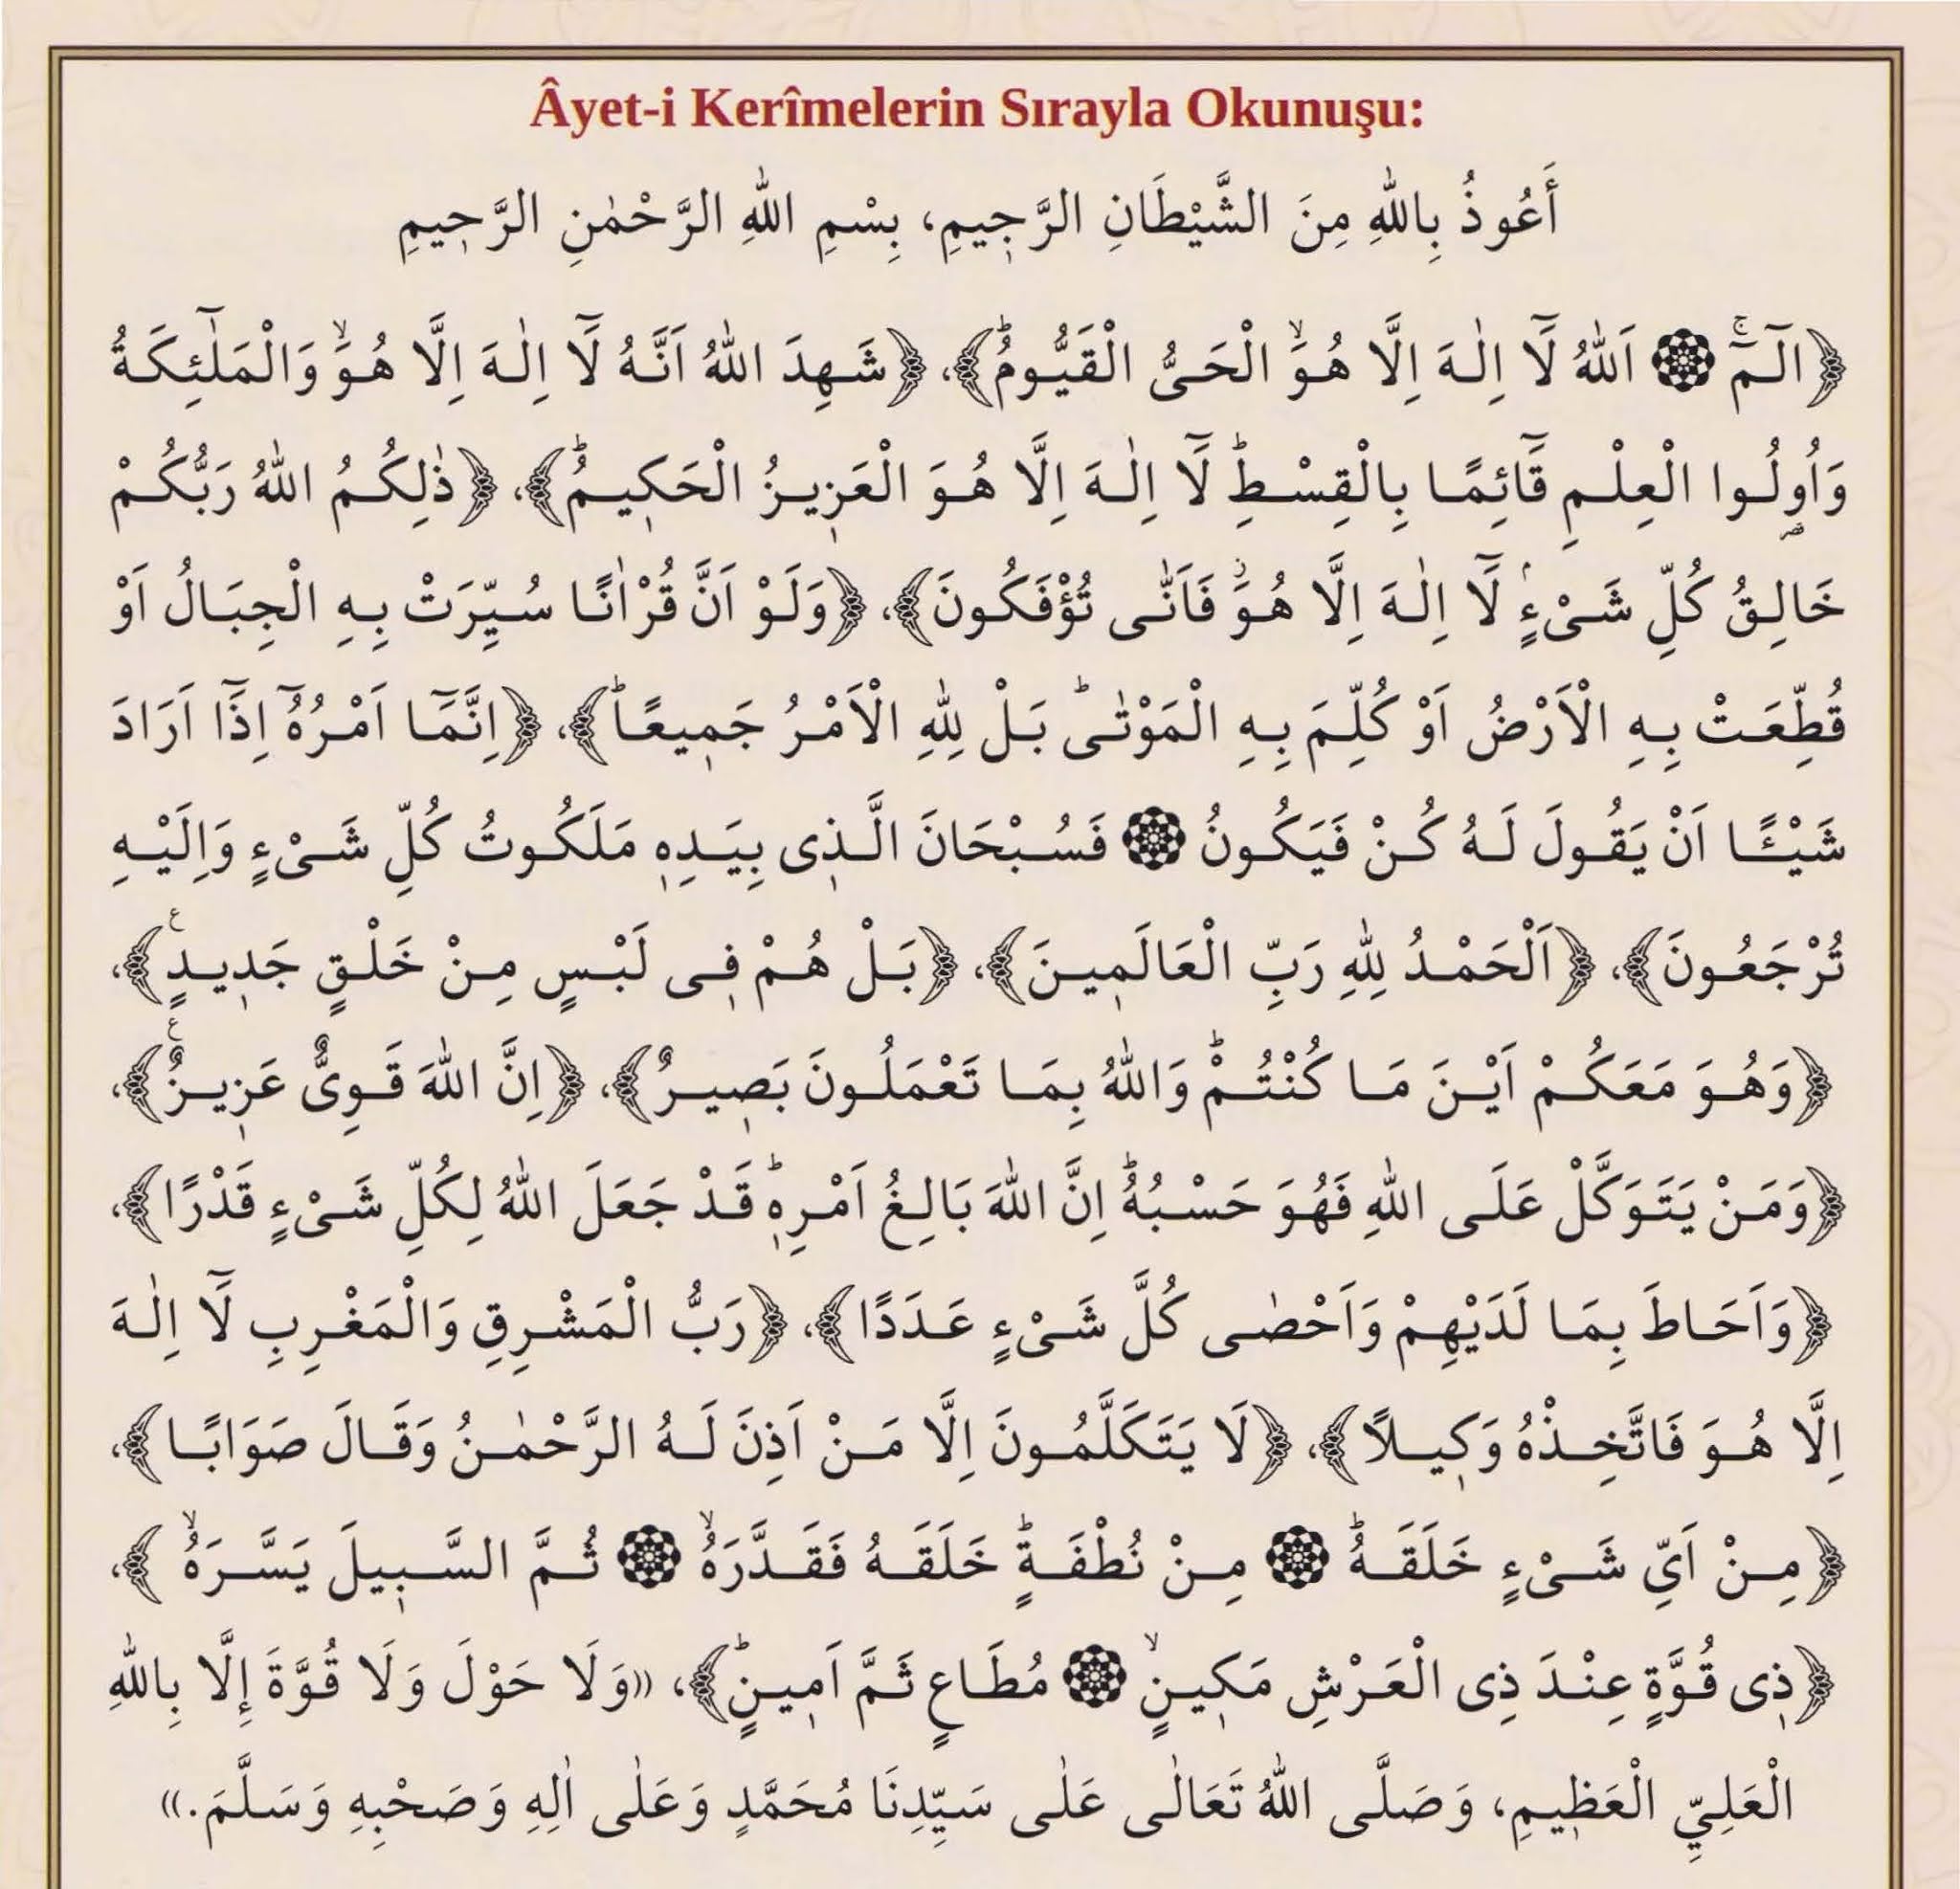 Âyet-i Kerîmelerin Sırayla Okunuşu:
أَعُوذُ بِاللّٰهِ مِنَ الشَّيْطَانِ الرَّج۪يمِ، بِسْمِ اللّٰهِ الرَّحْمٰنِ الرَّح۪يمِ
﴿الٓمٓۚ ۞ اَللّٰهُ لَٓا اِلٰهَ اِلَّا هُوَۙ الْحَىُّ الْقَيُّومُۜ﴾، ﴿شَهِدَ اللّٰهُ اَنَّهُ لَٓا اِلٰهَ اِلَّا هُوَۙ وَالْمَلٰٓئِكَةُ
وَاُو۬لُوا الْعِلْمِ قَٓائِمًا بِالْقِسْطِۜ لَٓا اِلٰهَ اِلَّا هُوَ الْعَز۪يزُ الْحَك۪يمُۜ﴾، ﴿ذٰلِكُمُ اللّٰهُ رَبُّكُمْ
خَالِقُ كُلِّ شَىْءٍۢ لَٓا اِلٰهَ اِلَّا هُوَۘ فَاَنّٰى تُؤْفَكُونَ﴾، ﴿وَلَوْ اَنَّ قُرْاٰنًا سُيِّرَتْ بِهِ الْجِبَالُ اَوْ
قُطِّعَتْ بِهِ الْاَرْضُ اَوْ كُلِّمَ بِهِ الْمَوْتٰىۜ بَلْ لِلّٰهِ الْاَمْرُ جَم۪يعًاۜ﴾، ﴿اِنَّمَٓا اَمْرُهُٓ اِذَٓا اَرَادَ
شَيْـًٔا اَنْ يَقُولَ لَهُ كُنْ فَيَكُونُ ۞ فَسُبْحَانَ الَّذ۪ى بِيَدِه۪ مَلَكُوتُ كُلِّ شَىْءٍ وَاِلَيْهِ
تُرْجَعُونَ﴾، ﴿اَلْحَمْدُ لِلّٰهِ رَبِّ الْعَالَم۪ينَ﴾، ﴿بَلْ هُمْ ف۪ى لَبْسٍ مِنْ خَلْقٍ جَد۪يدٍ۟﴾،
﴿وَهُوَ مَعَكُمْ اَيْنَ مَا كُنْتُمْۜ وَاللّٰهُ بِمَا تَعْمَلُونَ بَص۪يرٌ﴾، ﴿اِنَّ اللّٰهَ قَوِىٌّ عَز۪يزٌ۟﴾،
﴿وَمَنْ يَتَوَكَّلْ عَلَى اللّٰهِ فَهُوَ حَسْبُهُۜ اِنَّ اللّٰهَ بَالِغُ اَمْرِه۪ۜ قَدْ جَعَلَ اللّٰهُ لِكُلِّ شَىْءٍ قَدْرًا﴾،
﴿وَاَحَاطَ بِمَا لَدَيْهِمْ وَاَحْصٰى كُلَّ شَىْءٍ عَدَدًا﴾، ﴿رَبُّ الْمَشْرِقِ وَالْمَغْرِبِ لَٓا اِلٰهَ
اِلَّا هُوَ فَاتَّخِذْهُ وَك۪يلًا﴾، ﴿لَا يَتَكَلَّمُونَ اِلَّا مَنْ اَذِنَ لَهُ الرَّحْمٰنُ وَقَالَ صَوَابًا﴾،
﴿مِنْ اَىِّ شَىْءٍ خَلَقَهُۜ ۞ مِنْ نُطْفَةٍۜ خَلَقَهُ فَقَدَّرَهُۙ ۞ ثُمَّ السَّب۪يلَ يَسَّرَهُۙ﴾،
﴿ذ۪ى قُوَّةٍ عِنْدَ ذِى الْعَرْشِ مَك۪ينٍۙ ۞ مُطَاعٍ ثَمَّ اَم۪ينٍۜ﴾، «وَلَا حَوْلَ وَلَا قُوَّةَ إِلَّا بِاللّٰهِ
الْعَلِيِّ الْعَظ۪يمِ، وَصَلَّى اللّٰهُ تَعَالٰى عَلٰى سَيِّدِنَا مُحَمَّدٍ وَعَلٰى اٰلِهِ وَصَحْبِهِ وَسَلَّمَ.»